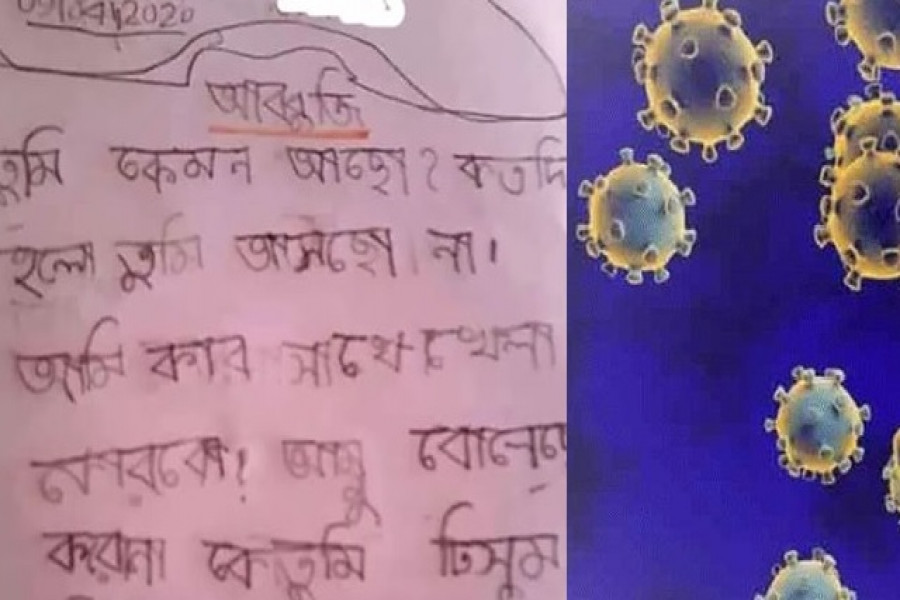 2020
আব্বুজি
তুমি কেমন আছো? কতদি
হলো তুমি আসছো না।
আমি কার সাথে খেলা
কোরবো? আম্মু বোলেছে
করোনা কে তুমি টিসুম